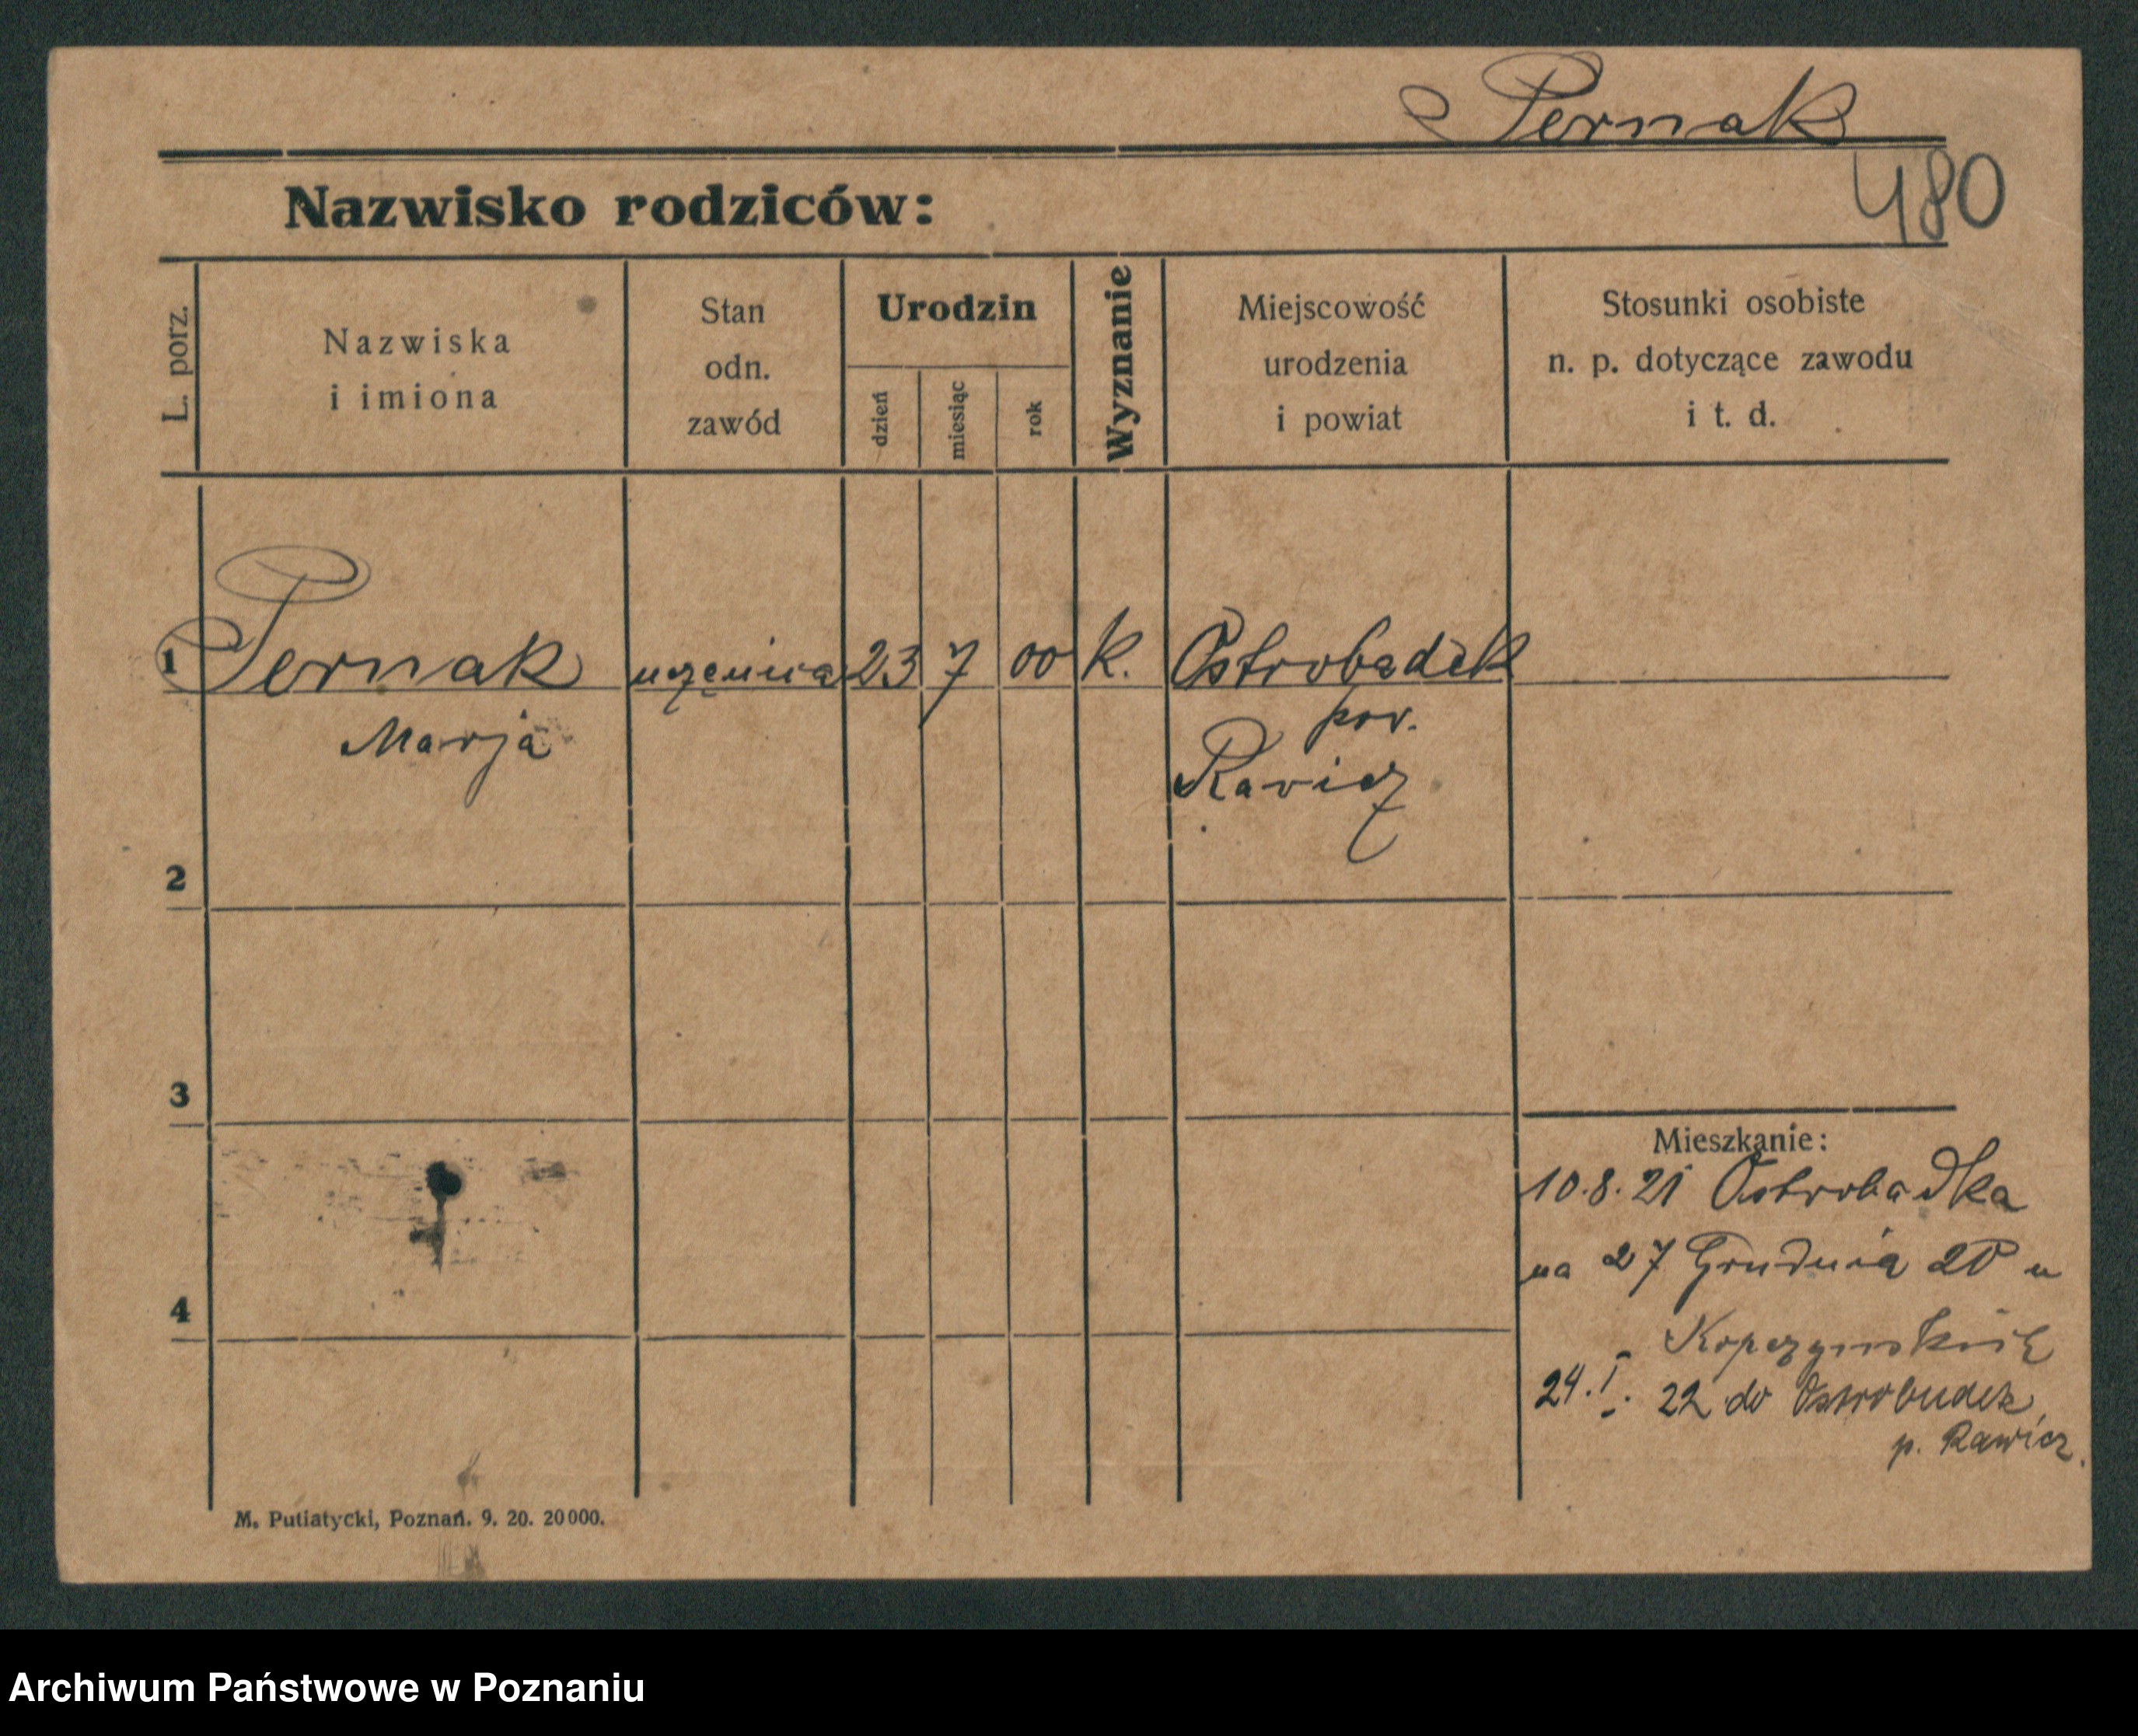 Pernak
480
Nazwisko rodziców:
L. porz.
Nazwiska
i imiona
Stan
odn.
zawód
Urodzin
dzień
miesiąc
rok
Wyznanie
Miejscowość
urodzenia
i powiat
Stosunki osobiste
n. p. dotyczące zawodu
i t. d.
1 Pernak 23 7 00 k. Ostrobudek
Marja
pow.
Rawicz
2
3
4
Mieszkanie:
10.8.21 Ostrobudka
na 27 Grudnia 20 u
24.I.22 do Ostrobudek
p. Rawicz.
M. Putiatycki, Poznań. 9. 20. 20000.
Archiwum Państwowe w Poznaniu